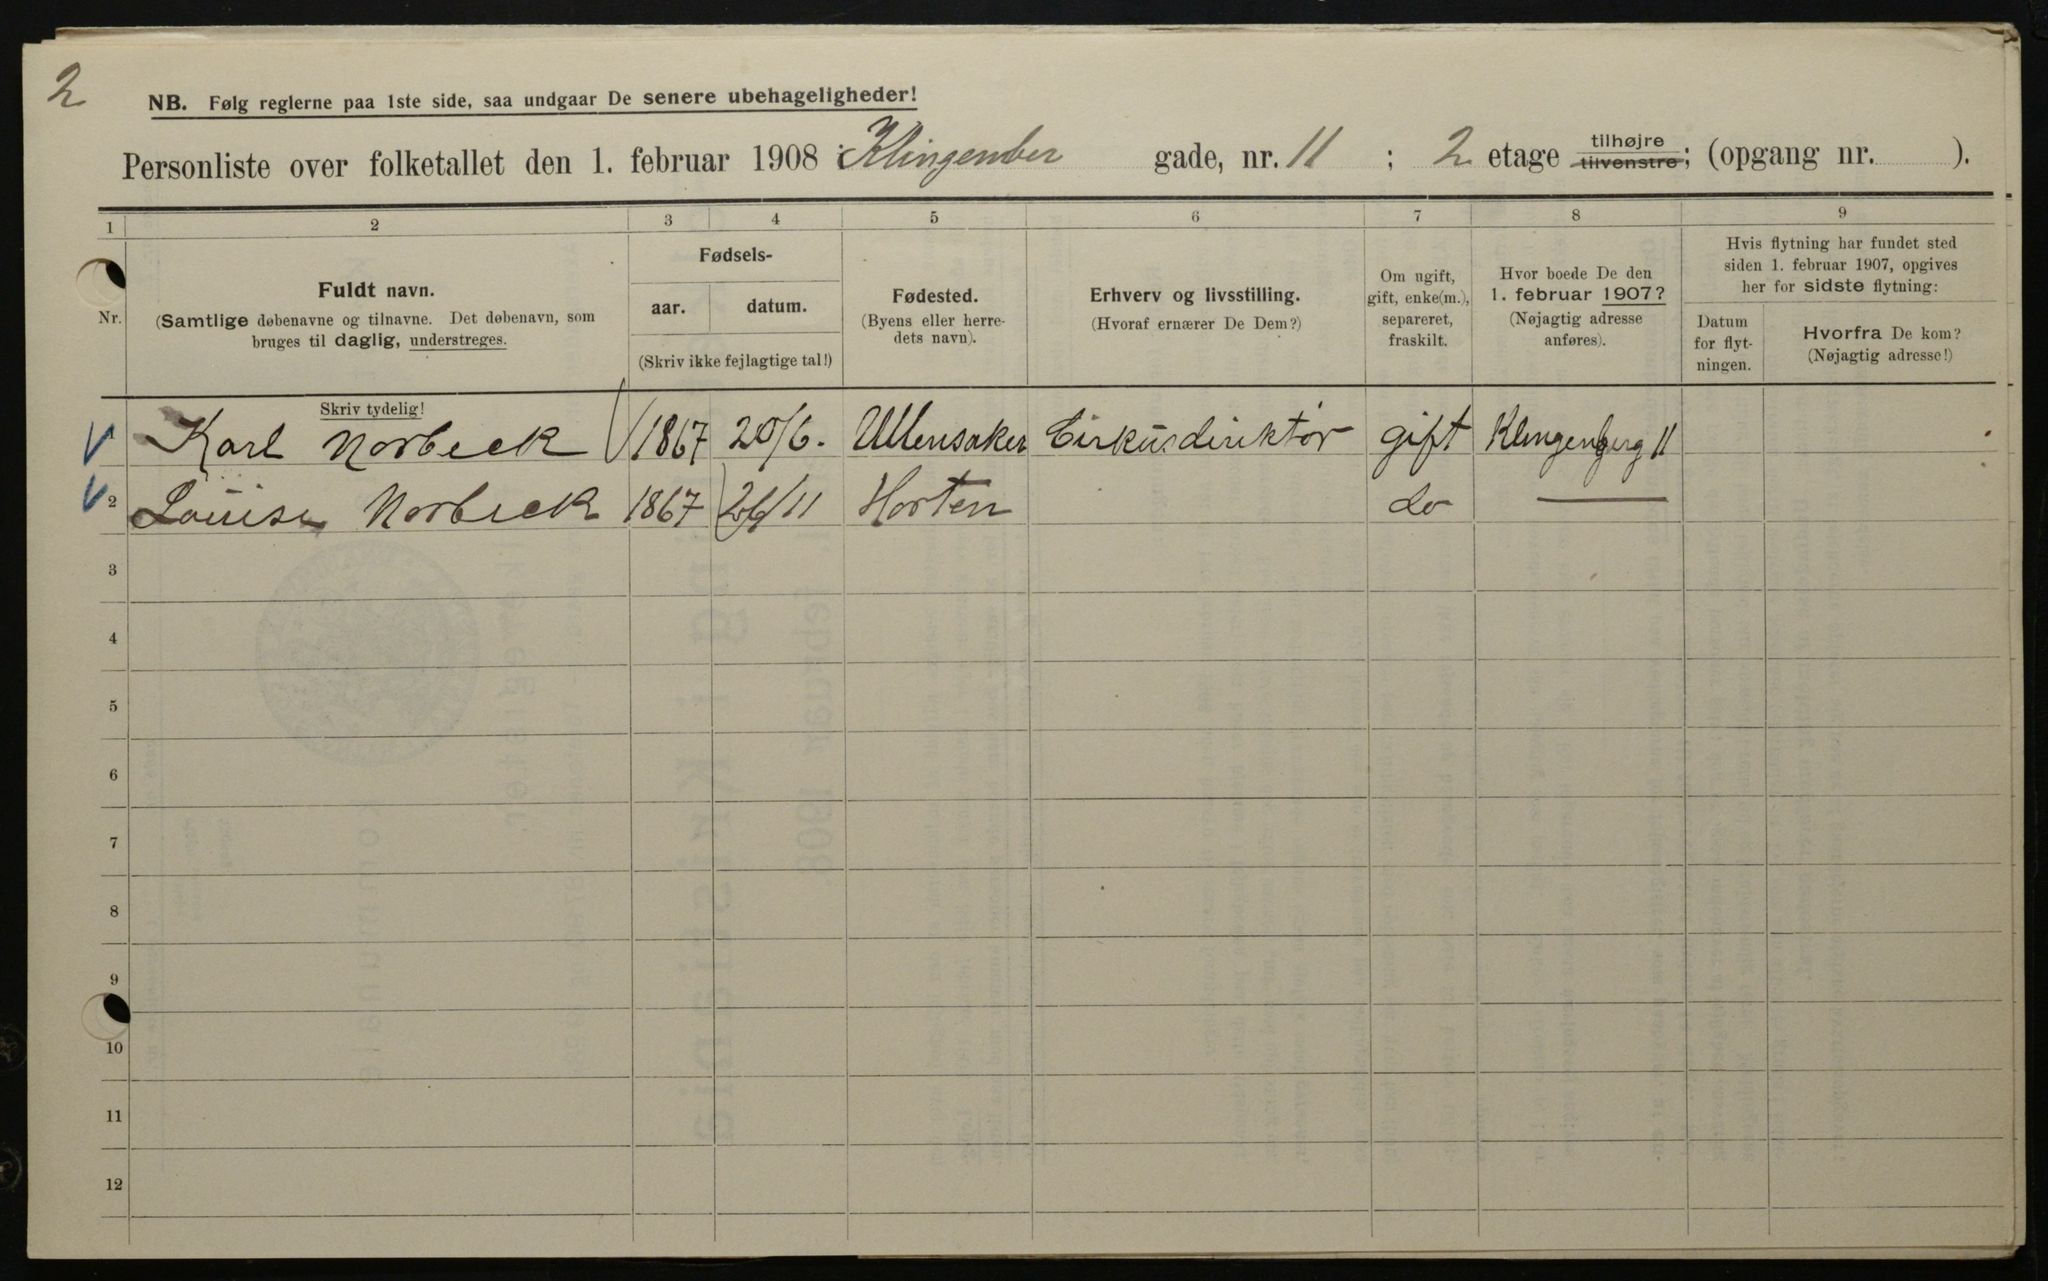 2
NB. Følg reglerne paa 1ste side, saa undgaar De senere ubehageligheder!
Personliste over folketallet den 1. februar 1908 i Klingenber gade, nr. 11 ; 2 etage tilhøjre tilvenstre; (opgang nr. ).
1 2 3 4 5 6 7 8 9
Nr.
Fuldt navn.
(Samtlige døbenavne og tilnavne. Det døbenavn, som
bruges til daglig, understreges.
Skriv tydelig!
Fødsels-
aar. datum.
(Skriv ikke fejlagtige tal!)
Fødested.
(Byens eller herre-
dets navn).
Erhverv og livsstilling.
(Hvoraf ernærer De Dem?)
Om ugift,
gift, enke(m.),
separeret,
fraskilt.
Hvor boede De den
1. februar 1907?
(Nøjagtig adresse
anføres).
Hvis flytning har fundet sted
siden 1. februar 1907, opgives
her for sidste flytning:
Datum
for flyt-
ningen.
Hvorfra De kom?
(Nøjagtig adresse!)
Karl Norbeck 1867 20/6. Ullensaker Cirkusdirektør gift Klingenberg 11
2 Louise Norbeck 1867 26/11 Horten do
3
4
5
6
7
8
9
10
11
12